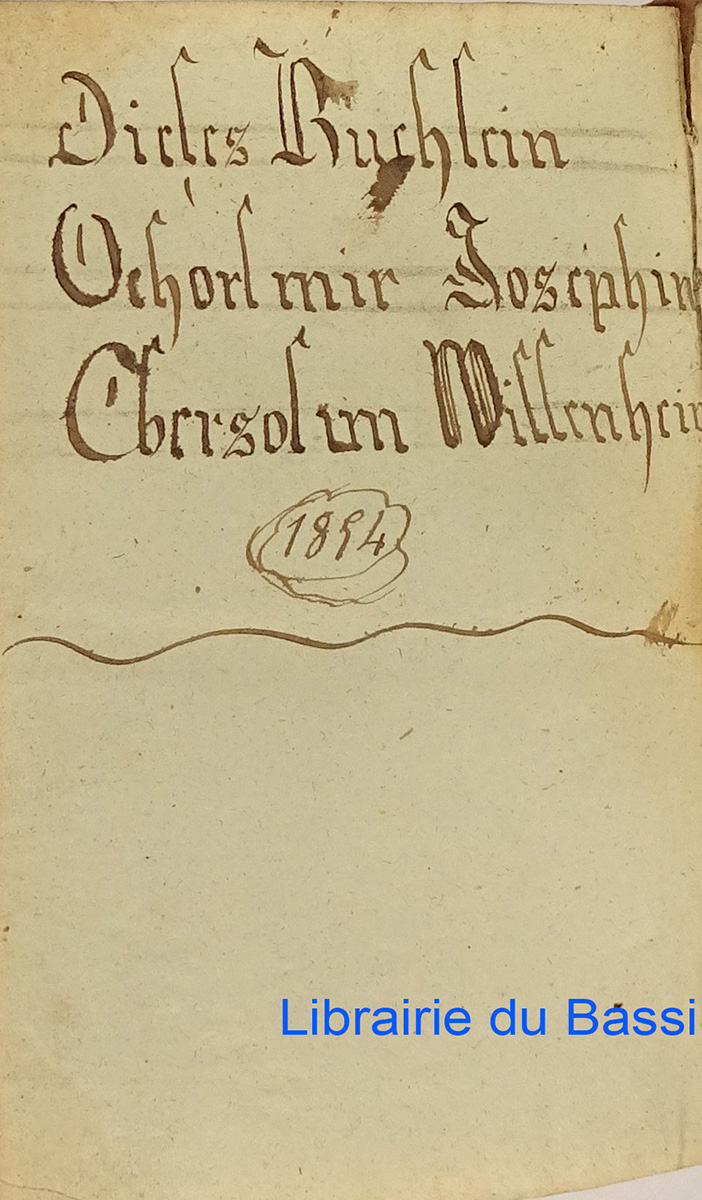 Dieses Buchlein
Gehort mir Josephin
Ebersol im Willenhein
1854
Librairie du Bassi